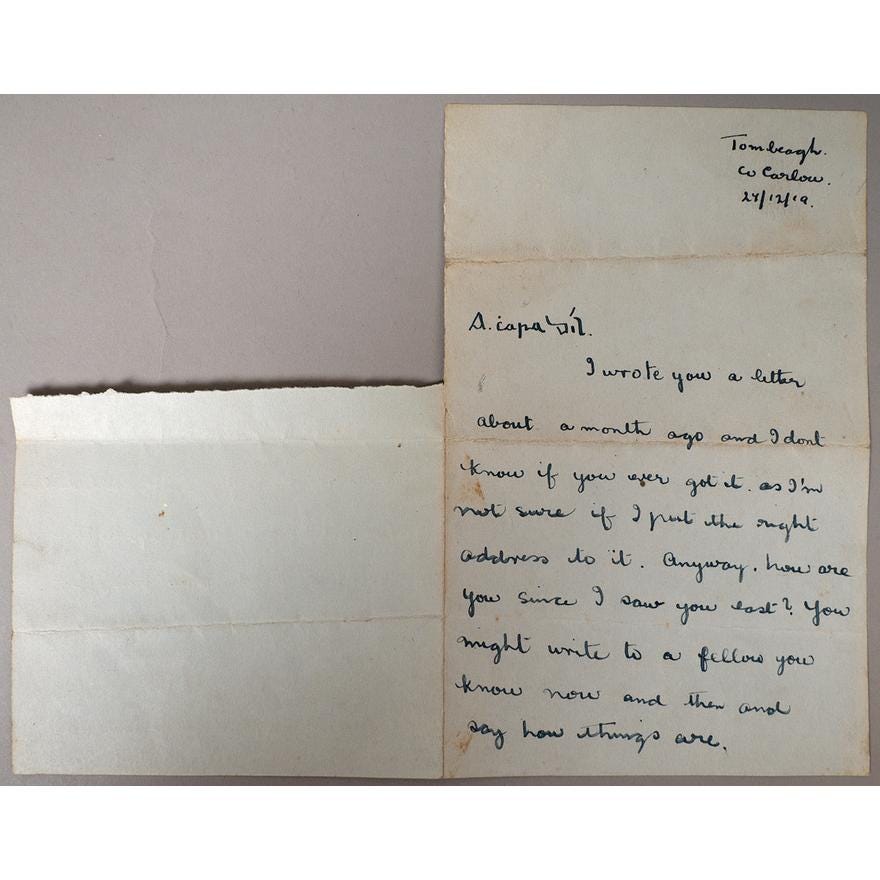 Tombeagh.
Co Carlow.
24/12/19.
A. ċara
I wrote you a letter
about a month ago and I dont
know if you ever got it. as I'm
not sure if I put the right
address to it. Anyway, how are
you since I saw you last? You
might write to a fellow you
know now and then and
say how things are.